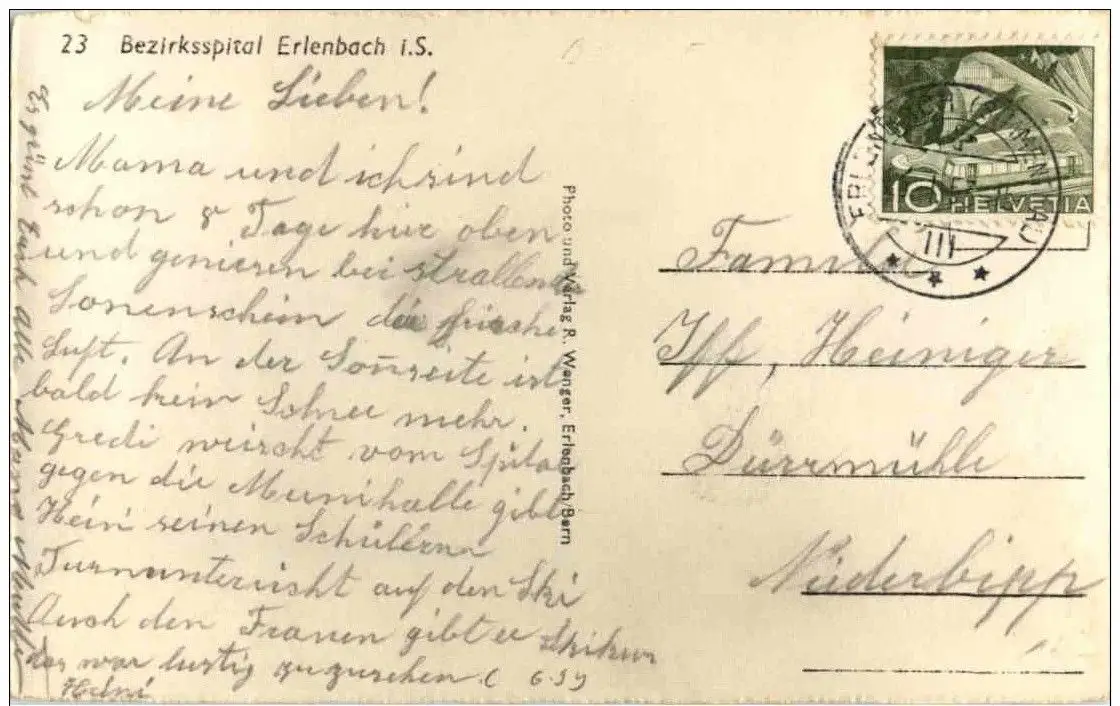 23 Bezirksspital Erlenbach i.S.
Meine Lieben!
Mama und ich sind
schon 8 Tage hier oben
und geniesen bei strallendem
Sonenschein die frische
Luft. An der Soñseite ist
bald kein Schnee mehr.
Gredi weischt vom Spital
gegen die Munihalle gibt
Heini seinen Schülern
Turnunterricht auf den Ski
Auch den Frauen gibt er Skikurs
das war lustig zuzusehen.
Heini
Es grüst Euch Alle Mama
Photo und Verlag R. Wenger, Erlenbach/Bern
10 HELVETIA
III
Familie
Iff, Heiniger
Dürrmühle
Niederbipp